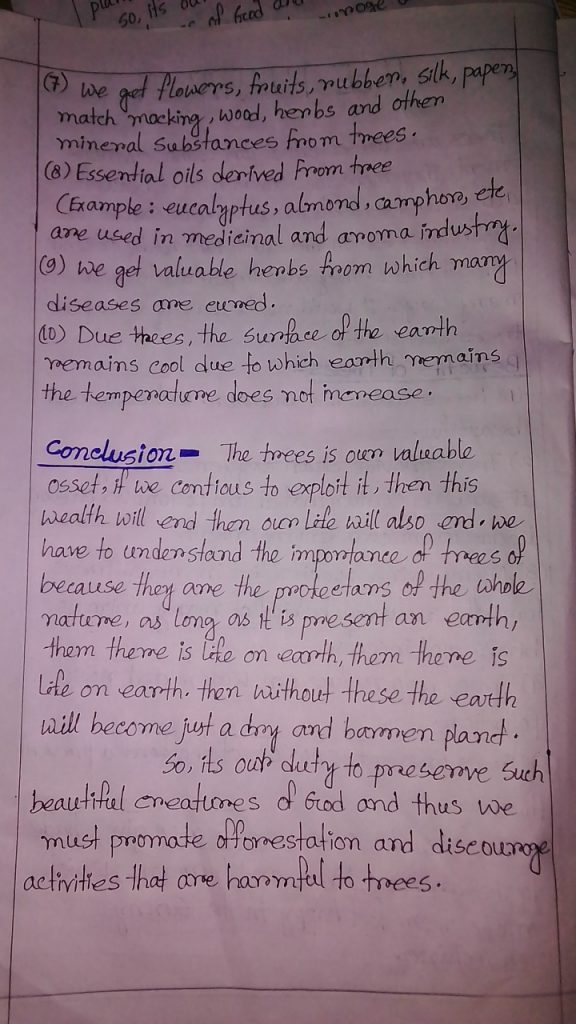 so, its
of God and
(7) We get flowers, fruits, rubber, silk, paper,
match macking, wood, herbs and other
mineral substances from trees.
(8) Essential oils derived from tree
(Example : eucalyptus, almond, camphore, etc,
are used in medicinal and aroma industry.
(9) We get valuable herbs from which many
diseases are cured.
(10) Due thees, the surface of the earth
remains cool due to which earth remains
the temperature does not increase.
Conclusion- The trees is our valuable
osset, if we contious to exploit it, then this
wealth will end then our Life will also end. we
have to understand the importance of trees of
because they are the protectars of the whole
nature, as long as it is present an earth,
them there is life on earth, them there is
Life on earth. then without these the earth
will become just a dry and barren planet.
So, its our duty to preserve such
beautiful creatures of God and thus we
must promate offorestation and discourage
activities that are harmful to trees.